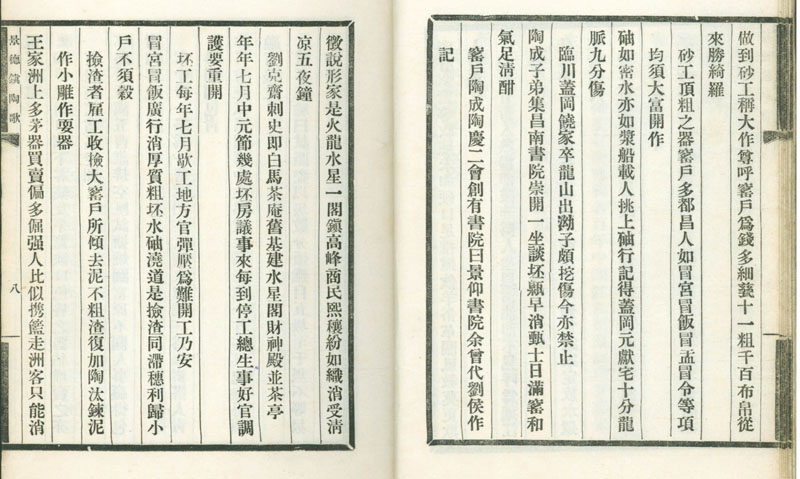 做到砂工稱大作尊呼窰戶爲錢多細藝十一粗千百布帛從
來勝綺羅
砂工頂粗之器窰戶多都昌人如冒宮冒飯冒盂冒令等項
均須大富開作
砶如密水亦如漿船載人挑上砶行記得蓋岡元獻宅十分龍
脈九分傷
臨川蓋岡饒家卒龍山出泑子頗挖傷今亦禁止
陶成子弟集昌南書院崇開一坐談坯甎早消甄士日滿窰和
氣足淸酣
窰戶陶成陶慶二會創有書院曰景仰書院余曾代劉侯作
記
徵說形家是火龍水星一閣鎭高峰商民熙穰紛如織消受淸
凉五夜鐘
劉克齋刺史即白馬茶庵舊基建水星閣財神殿並茶亭
年年七月中元節幾處坯房議事來每到停工總生事好官調
護要重開
坯工每年七月歇工地方官彈壓爲難開工乃安
冒宮冒飯廣行消厚質粗坯水砶澆道是撿渣同滯穗利歸小
戶不須穀
撿渣者雇工收撿大窰戶所傾去泥不粗渣復加陶汰鍊泥
作小雕作耍器
王家洲上多茅器買賣偏多倔强人比似携籃走洲客只能消
景德鎭陶歌
八